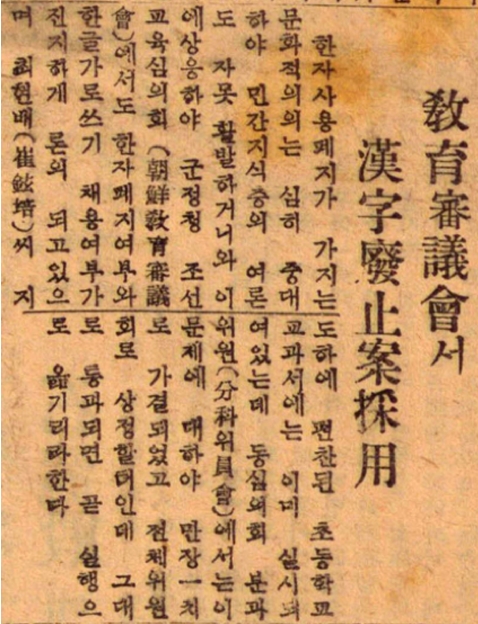 敎育審議會서
漢字廢止案採用
한자사용페지가 가지는
문화적의의는 심히 중대
하야 민간지식층의 여론
도 자못 활발하거니와 이
에상응하야 군정청 조선
교육심의회 (朝鮮敎育審議
會)에서도 한자페지여부와
한글가로쓰기 채용여부가
진지하게 론의 되고있으
며 최현배(崔鉉培)씨 지
도하에 편찬된 초등학교
교과서에는 이미 실시되
여있는데 동심의회 분과
위원(分科委員會)에서는이
문제에 대하야 만장一치
로 가결되었고 전체위원
회로 상정할터인데 그대
로 통과되면 곧 실행으
로 옮기리라한다